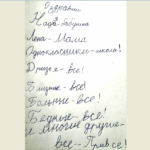 Надя-бабушка
Лена-Мама
Одноклассники-школа!
Друзья-все!
Близкие-все!
Больные-все!
Бедные-все!
и многие другие
все-